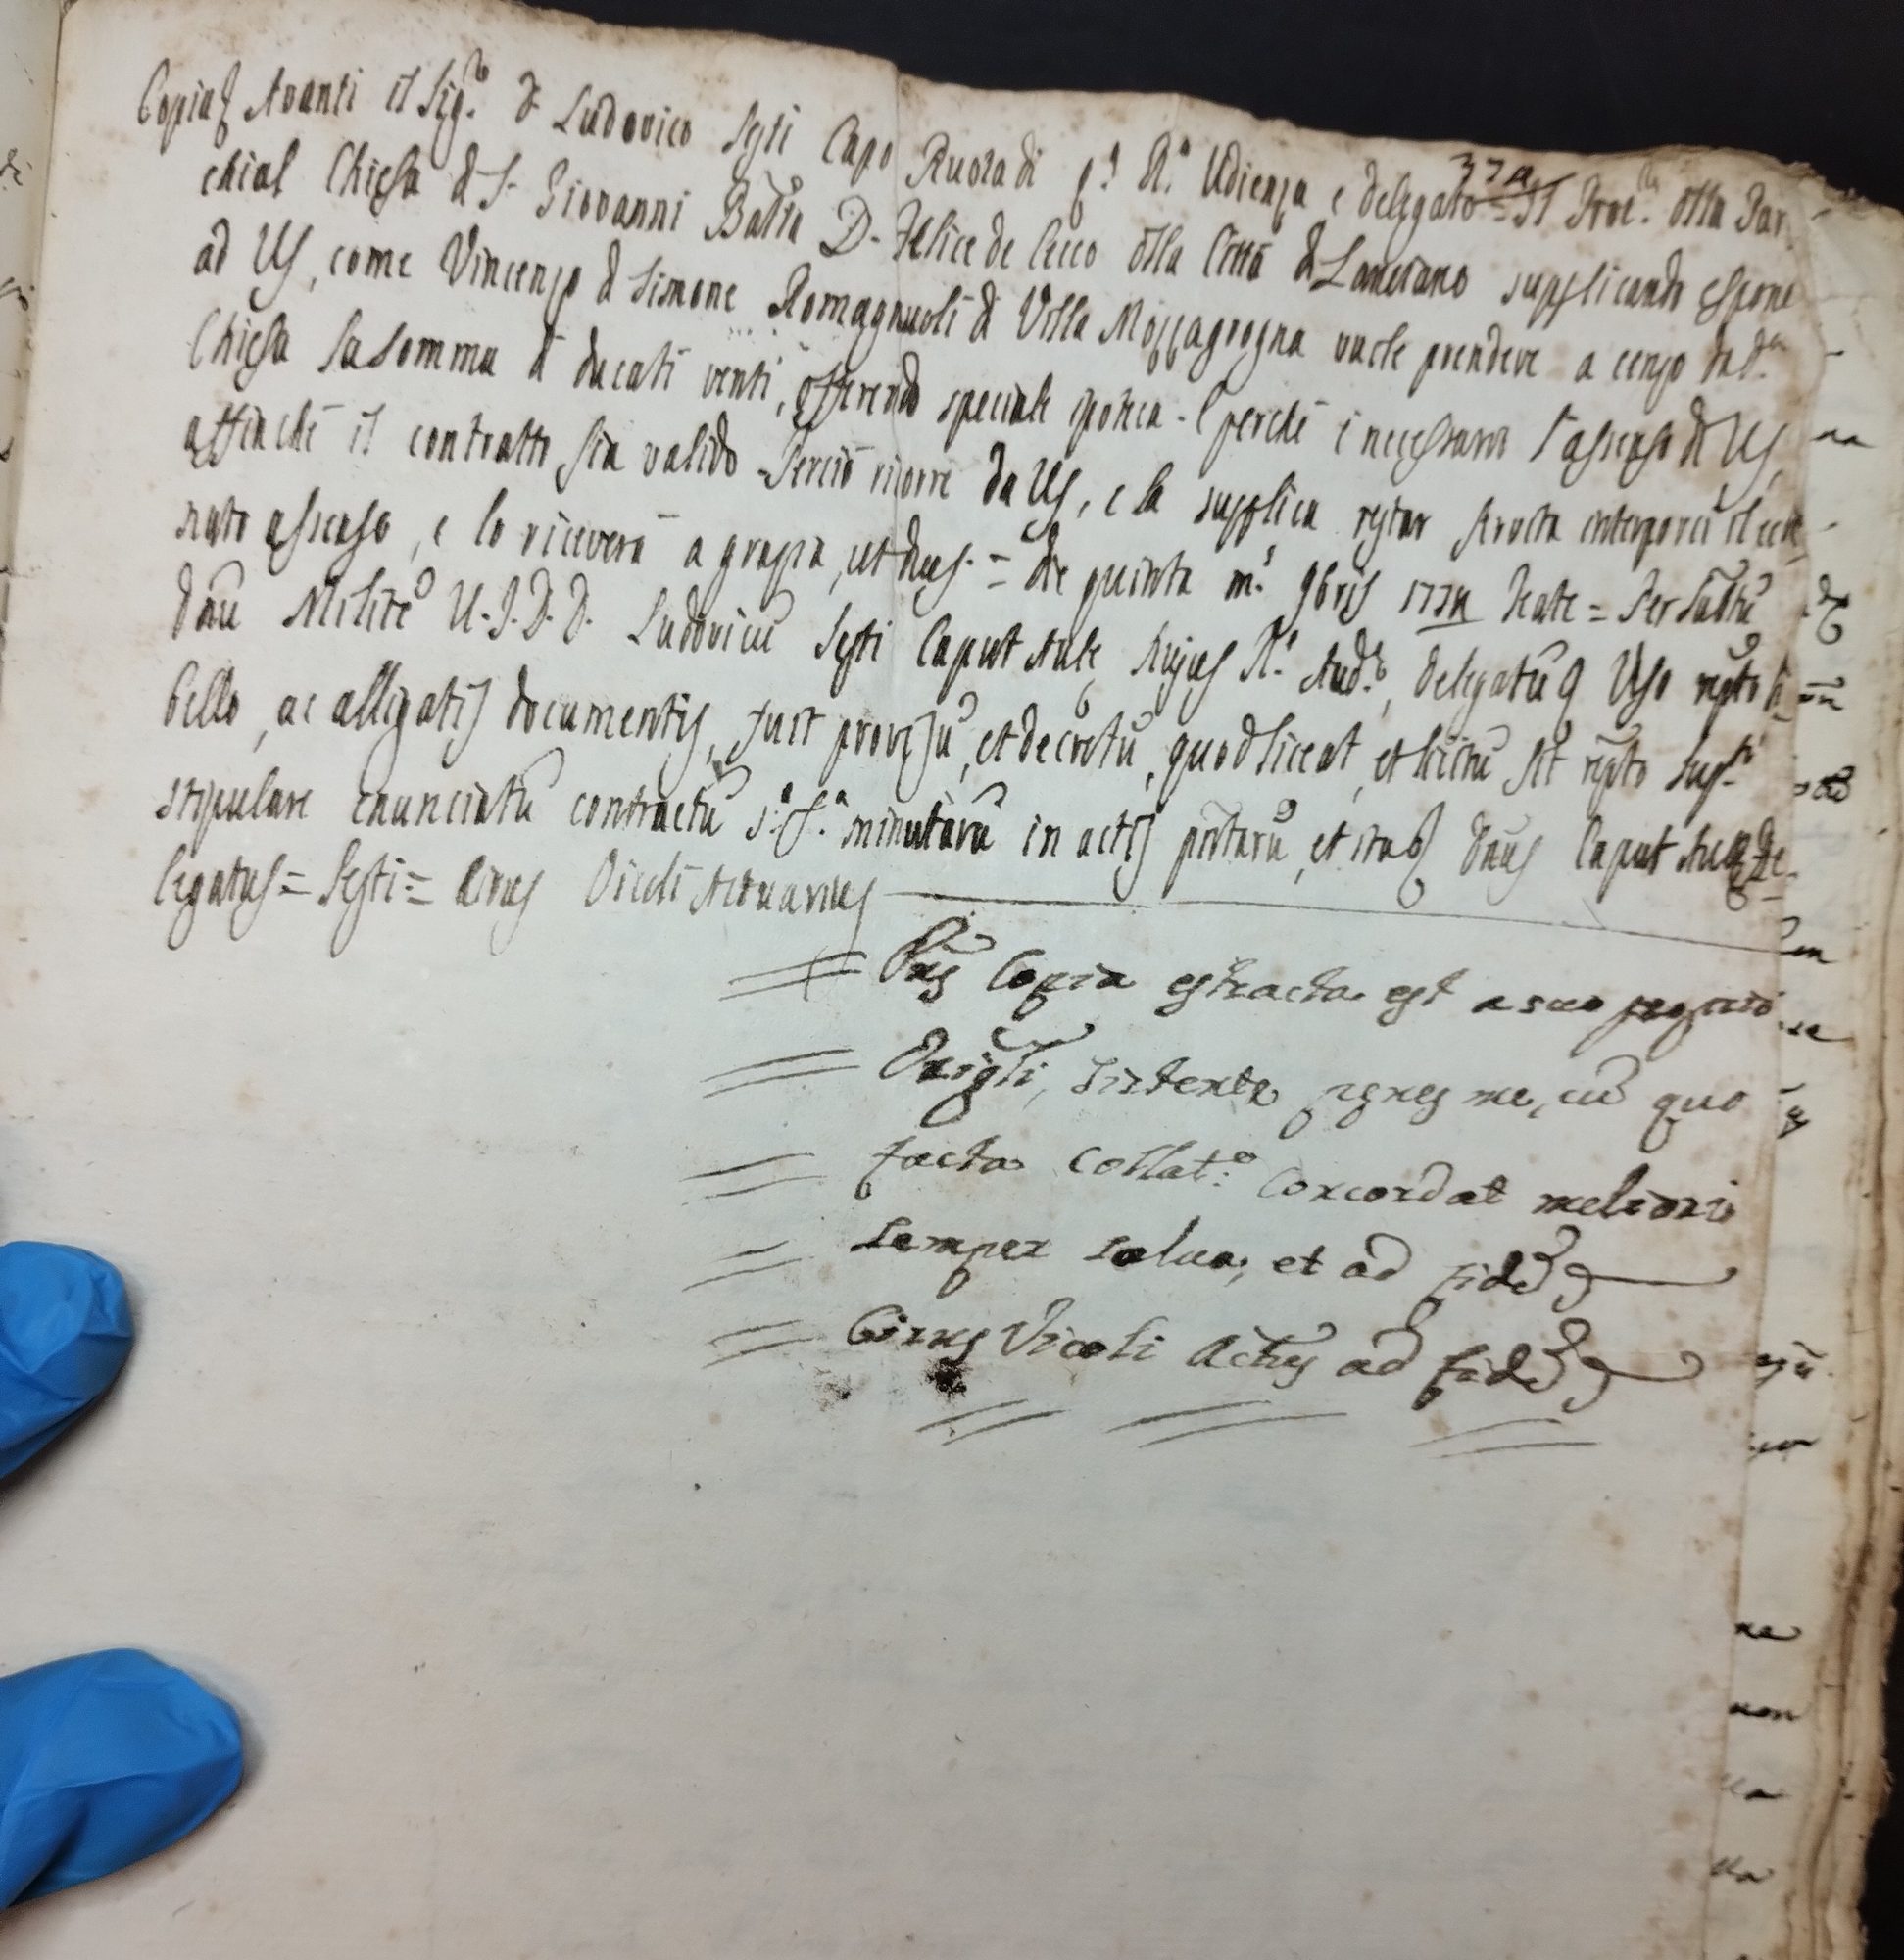 Copia Avanti il Sig.re D. Ludovico Sesti Capo Ruota di q.a R.a Udienza e delegato = Il Proc.re dlla Par-
chial Chiesa d S. Giovanni Batta D. Felice de Cecco dlla Città d Lanciano supplicando espone
ad US, come Vincenzo d Simone Romagnuoli d Villa Mozzagrogna vuole prendere a censo da d.a
Chiesa la somma d ducati venti, offerendo speciale ipoteca. E perchè è necessario l'assenso d US,
affinchè il contratto sia valido. Perciò ricorre da US, e la supplica restar servita interporci il
assenso, e lo riceverà a grazia, ut Deus. = Die quinta m.s 9bris Teate = Per
Dnu Milite U.J.D.D. Ludovicu Sesti Caput Aule hujus R.e Aud.e, delegatu Viso rpto li-
bello, ac alligatis documentis, fuit provisu, et decretu, quod liceat, et licitu sit rpto sup.ti
stipulare enunciatu contractu minutaru in actis pntaru, et Dnus Caput Aule de-
legatus = Sesti = Cirus Vicoli Actuarius
37
Pns Copia estracta est a suo proprio
Origli, sistente penes me, cu quo
facta Collat.e Concordat meliori
semper salva; et ad fide
Cirus Vicoli Actus ad fide